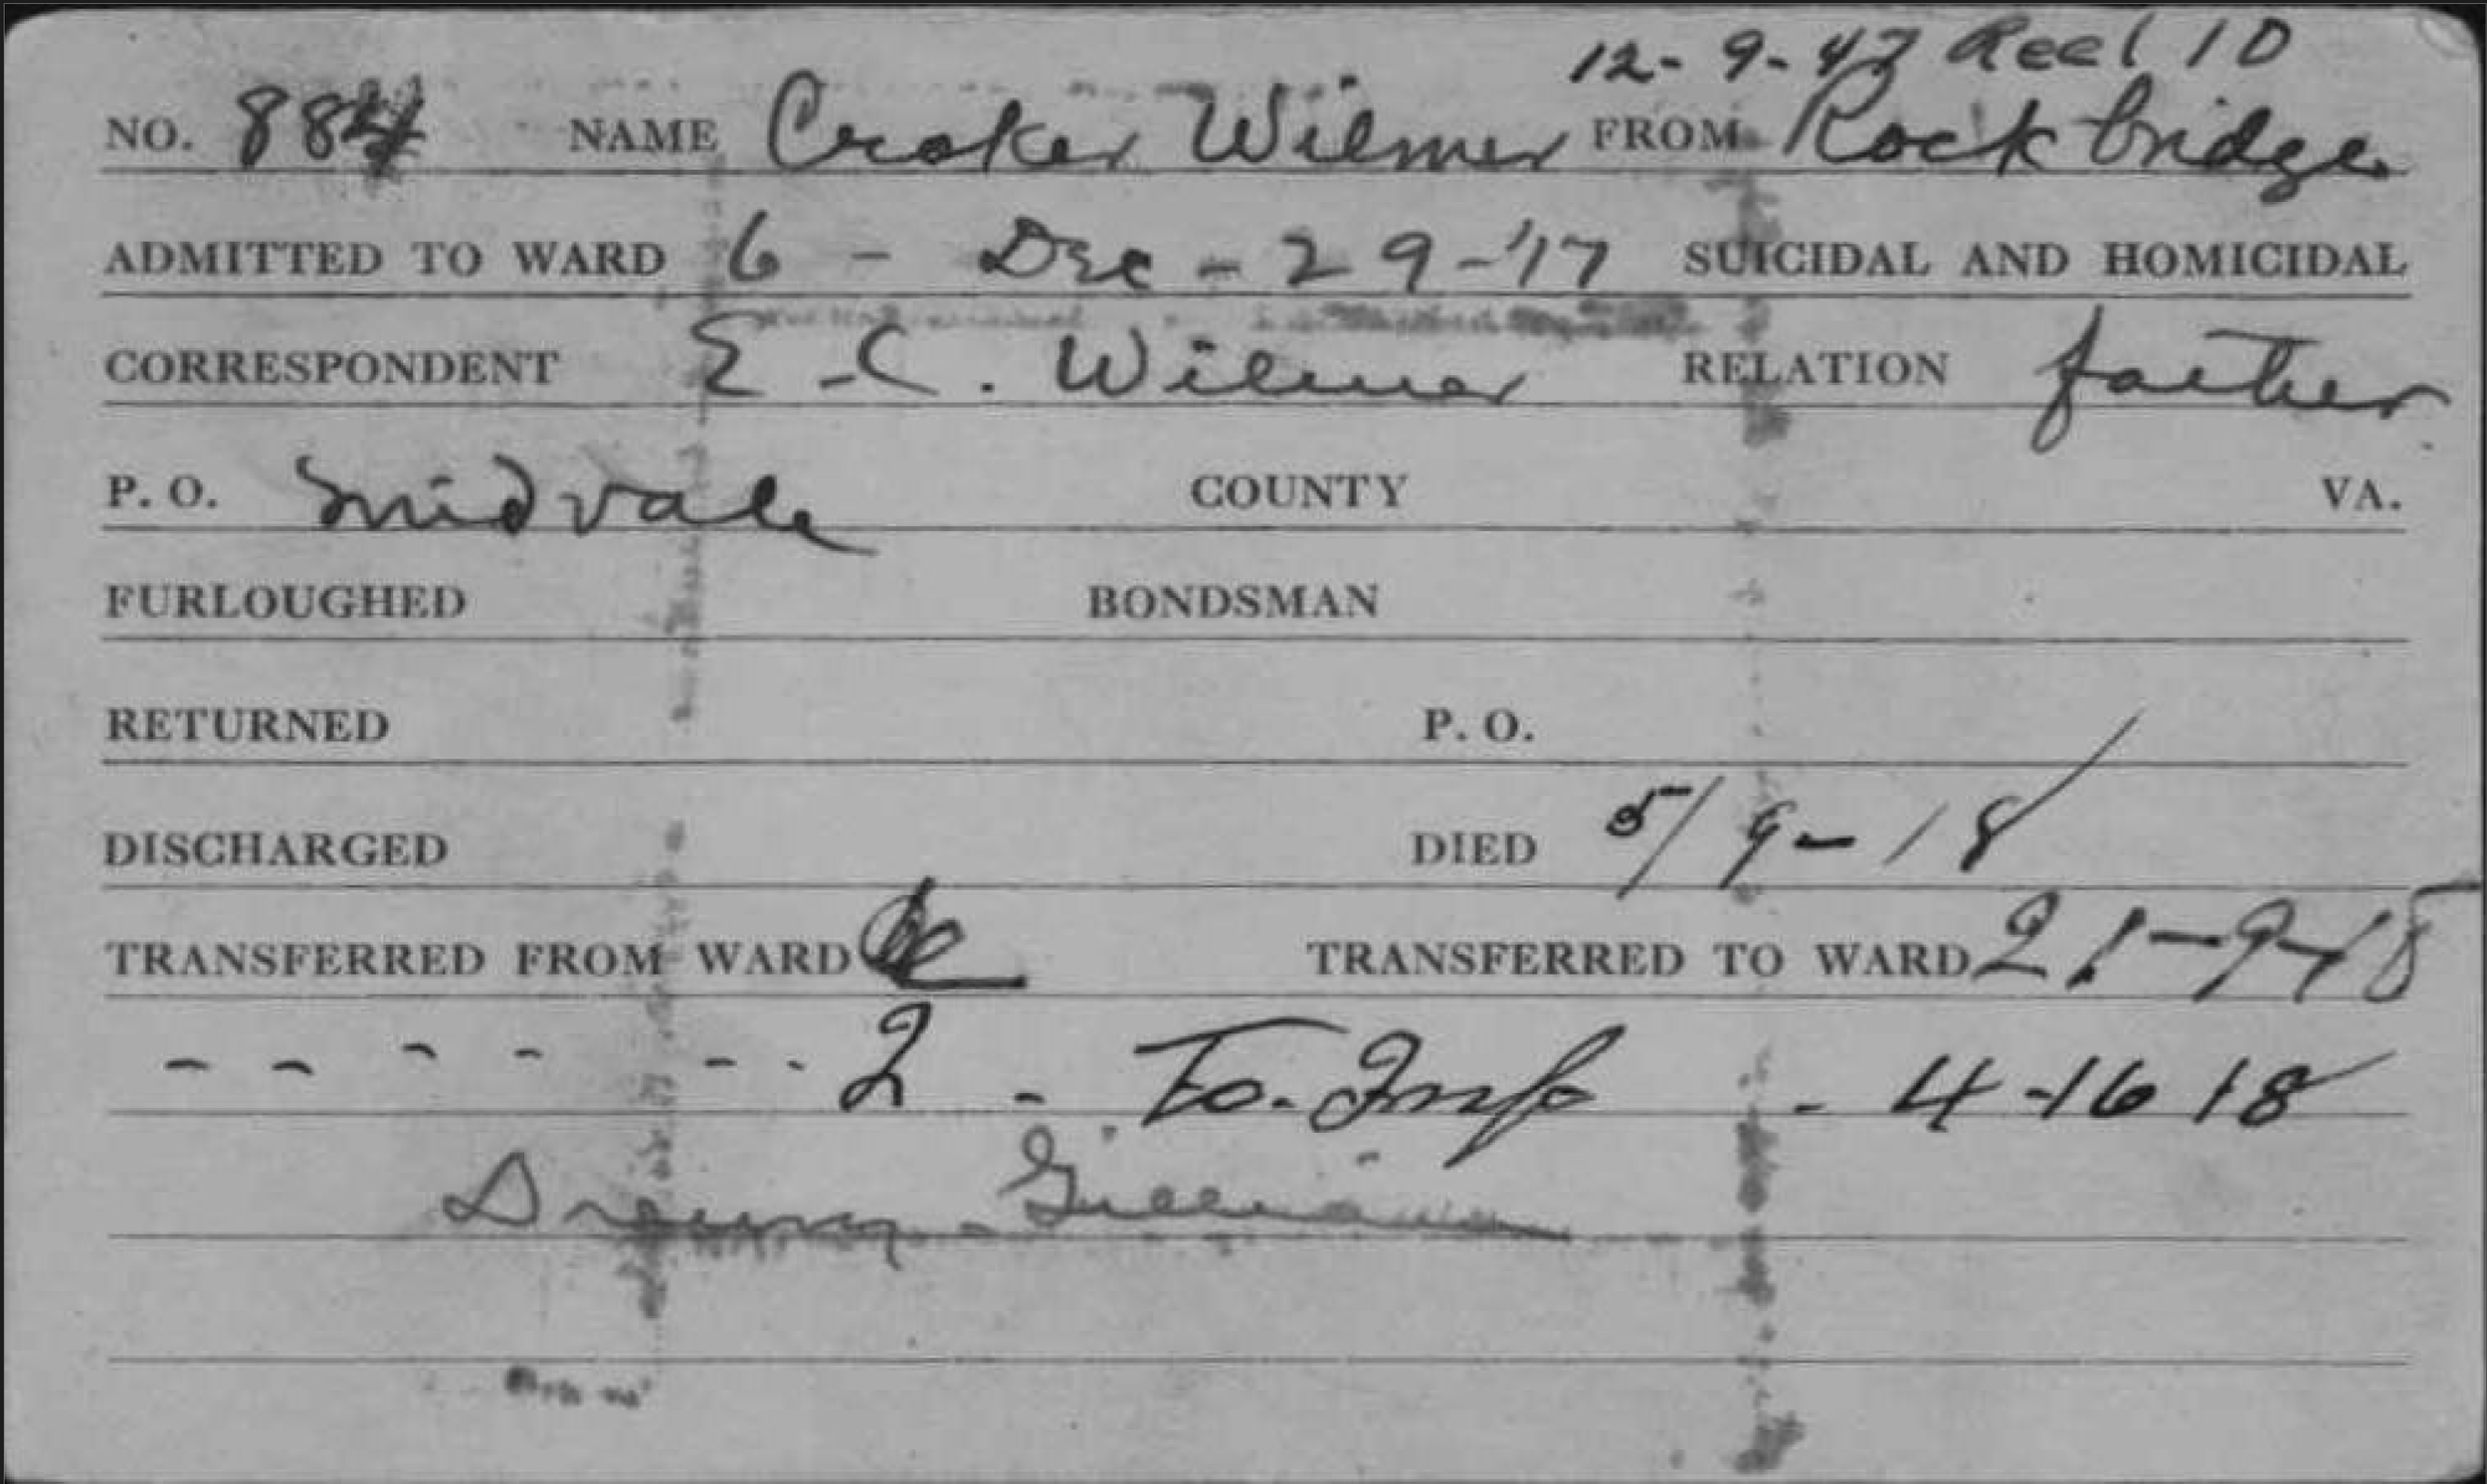 12-9-47 Reel 10
NO. 884 NAME Croker Wilmer FROM Rockbridge
ADMITTED TO WARD 6 - Dec - 29 - '17 SUICIDAL AND HOMICIDAL
CORRESPONDENT E. C. Wilmer RELATION father
P. O. Midvale COUNTY VA.
FURLOUGHED BONDSMAN
RETURNED P. O.
DISCHARGED DIED 5/9-18
TRANSFERRED FROM WARD TRANSFERRED TO WARD 2 1-9-18
- - - - - - 2 - To. Inf - 4-16 18
Drewry - Gilliam